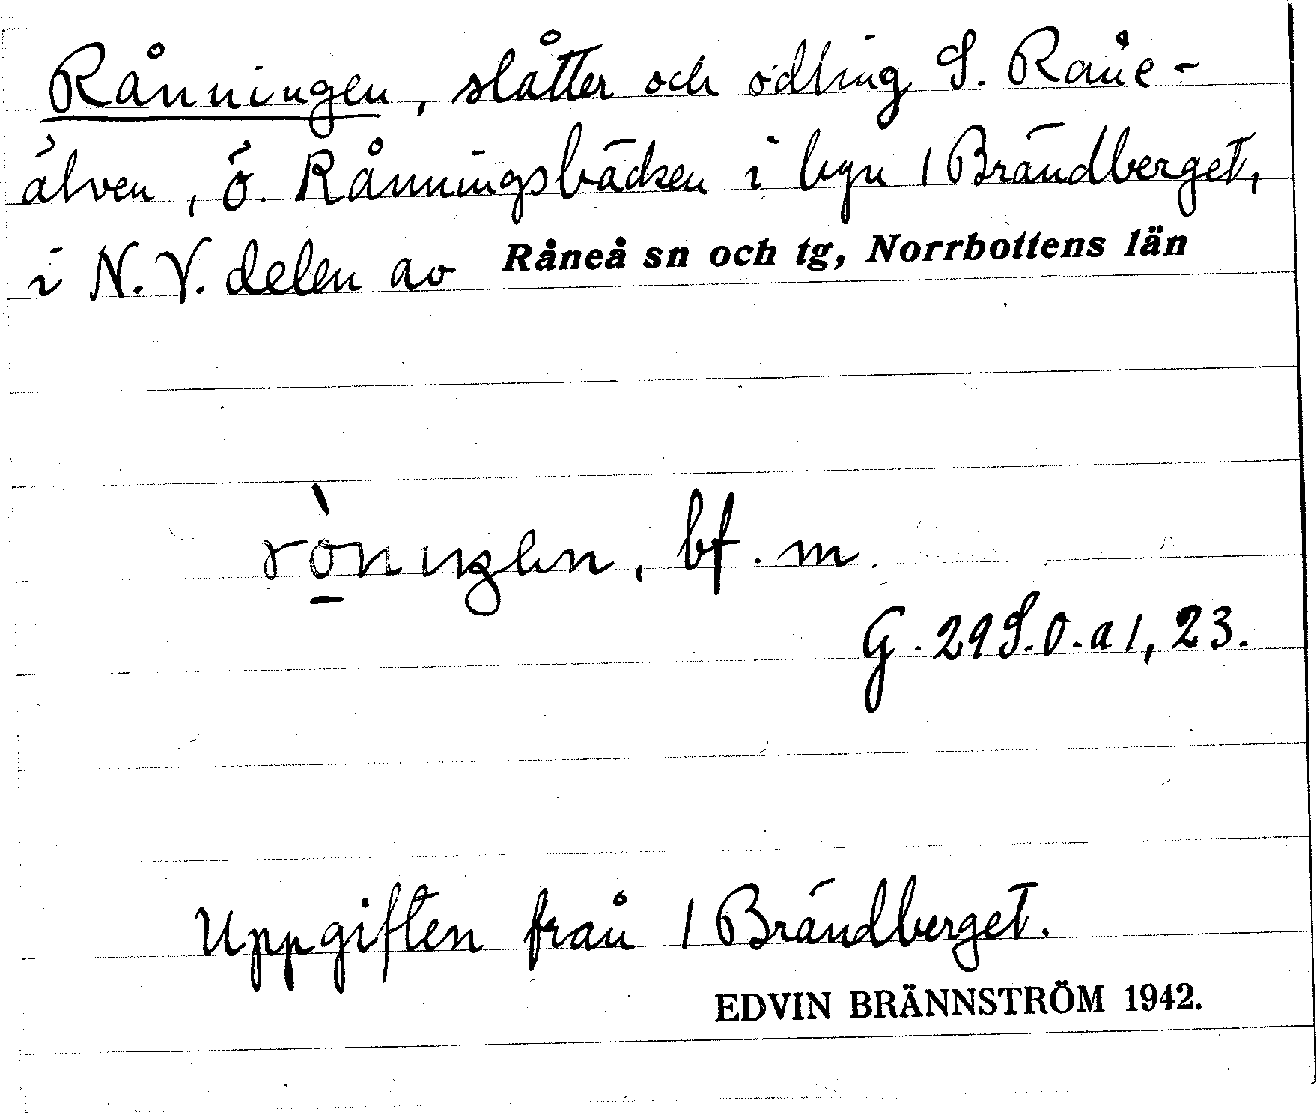 Rånningen, slåtter och odling S. Råne-
älven, ö. Rånningsbäcken i byn 1 Brändberget,
i N.V. delen av Råneå sn och tg, Norrbottens län
bf. m.
G. 29 S.O. a 1, 23.
Uppgiften från 1 Brändberget.
EDVIN BRÄNNSTRÖM 1942.